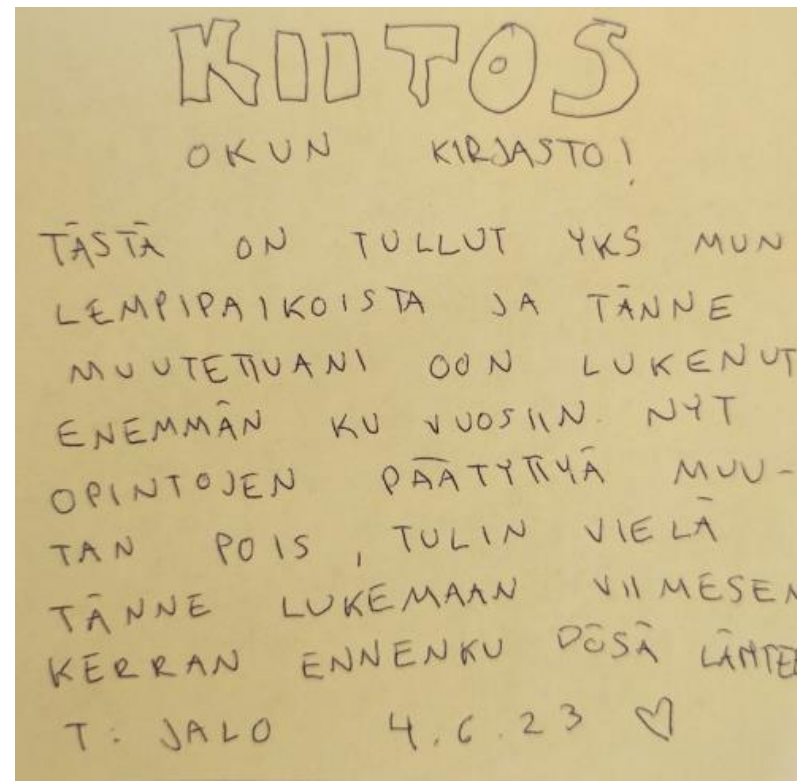 KIITOS
OKUN KIRJASTO!
TÄSTÄ ON TULLUT YKS MUN
LEMPIPAIKOISTA JA TÄNNE
MUUTETTUANI OON LUKENUT
ENEMMÄN KU VUOSIIN. NYT
OPINTOJEN PÄÄTYTTYÄ MUU-
TAN POIS, TULIN VIELÄ
TÄNNE LUKEMAAN VIIMESEN
KERRAN ENNENKU DÖSÄ LÄHTEE
T: JALO 4.6.23 ♡